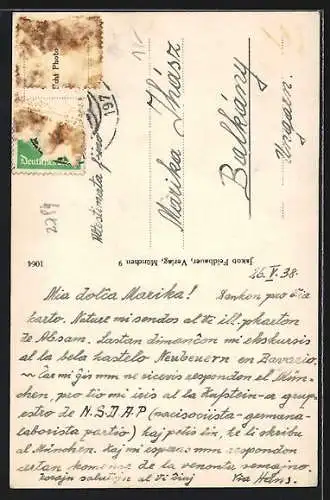 Echt Photo
Deutsches
197
Al estimata
Márika Ihász
Balkány
Ungarn.
2289
1064
Jakob Feldbauer, Verlag, München 9
26.V.38.
Mia dolĉa Marika! Dankon pro via
karto. Nature mi sendos al vi
de Absam. Lastan dimanĉon mi ekskursis
al la bela kastelo Neubeuern en Bavario.
Ĉar mi ĝis nun ne ricevis respondon el Mün-
chen, pro tio mi iris al la Kufstein-a grup-
estro de N.S.D.A.P (nacisociista-germana-
laborista partio) kaj petis lin, ke li skribu
al München. Kaj mi esperas nun respondon
certan komence de la venonta semajno.
Korajn salutojn al vi ĉiuj Via Hans.